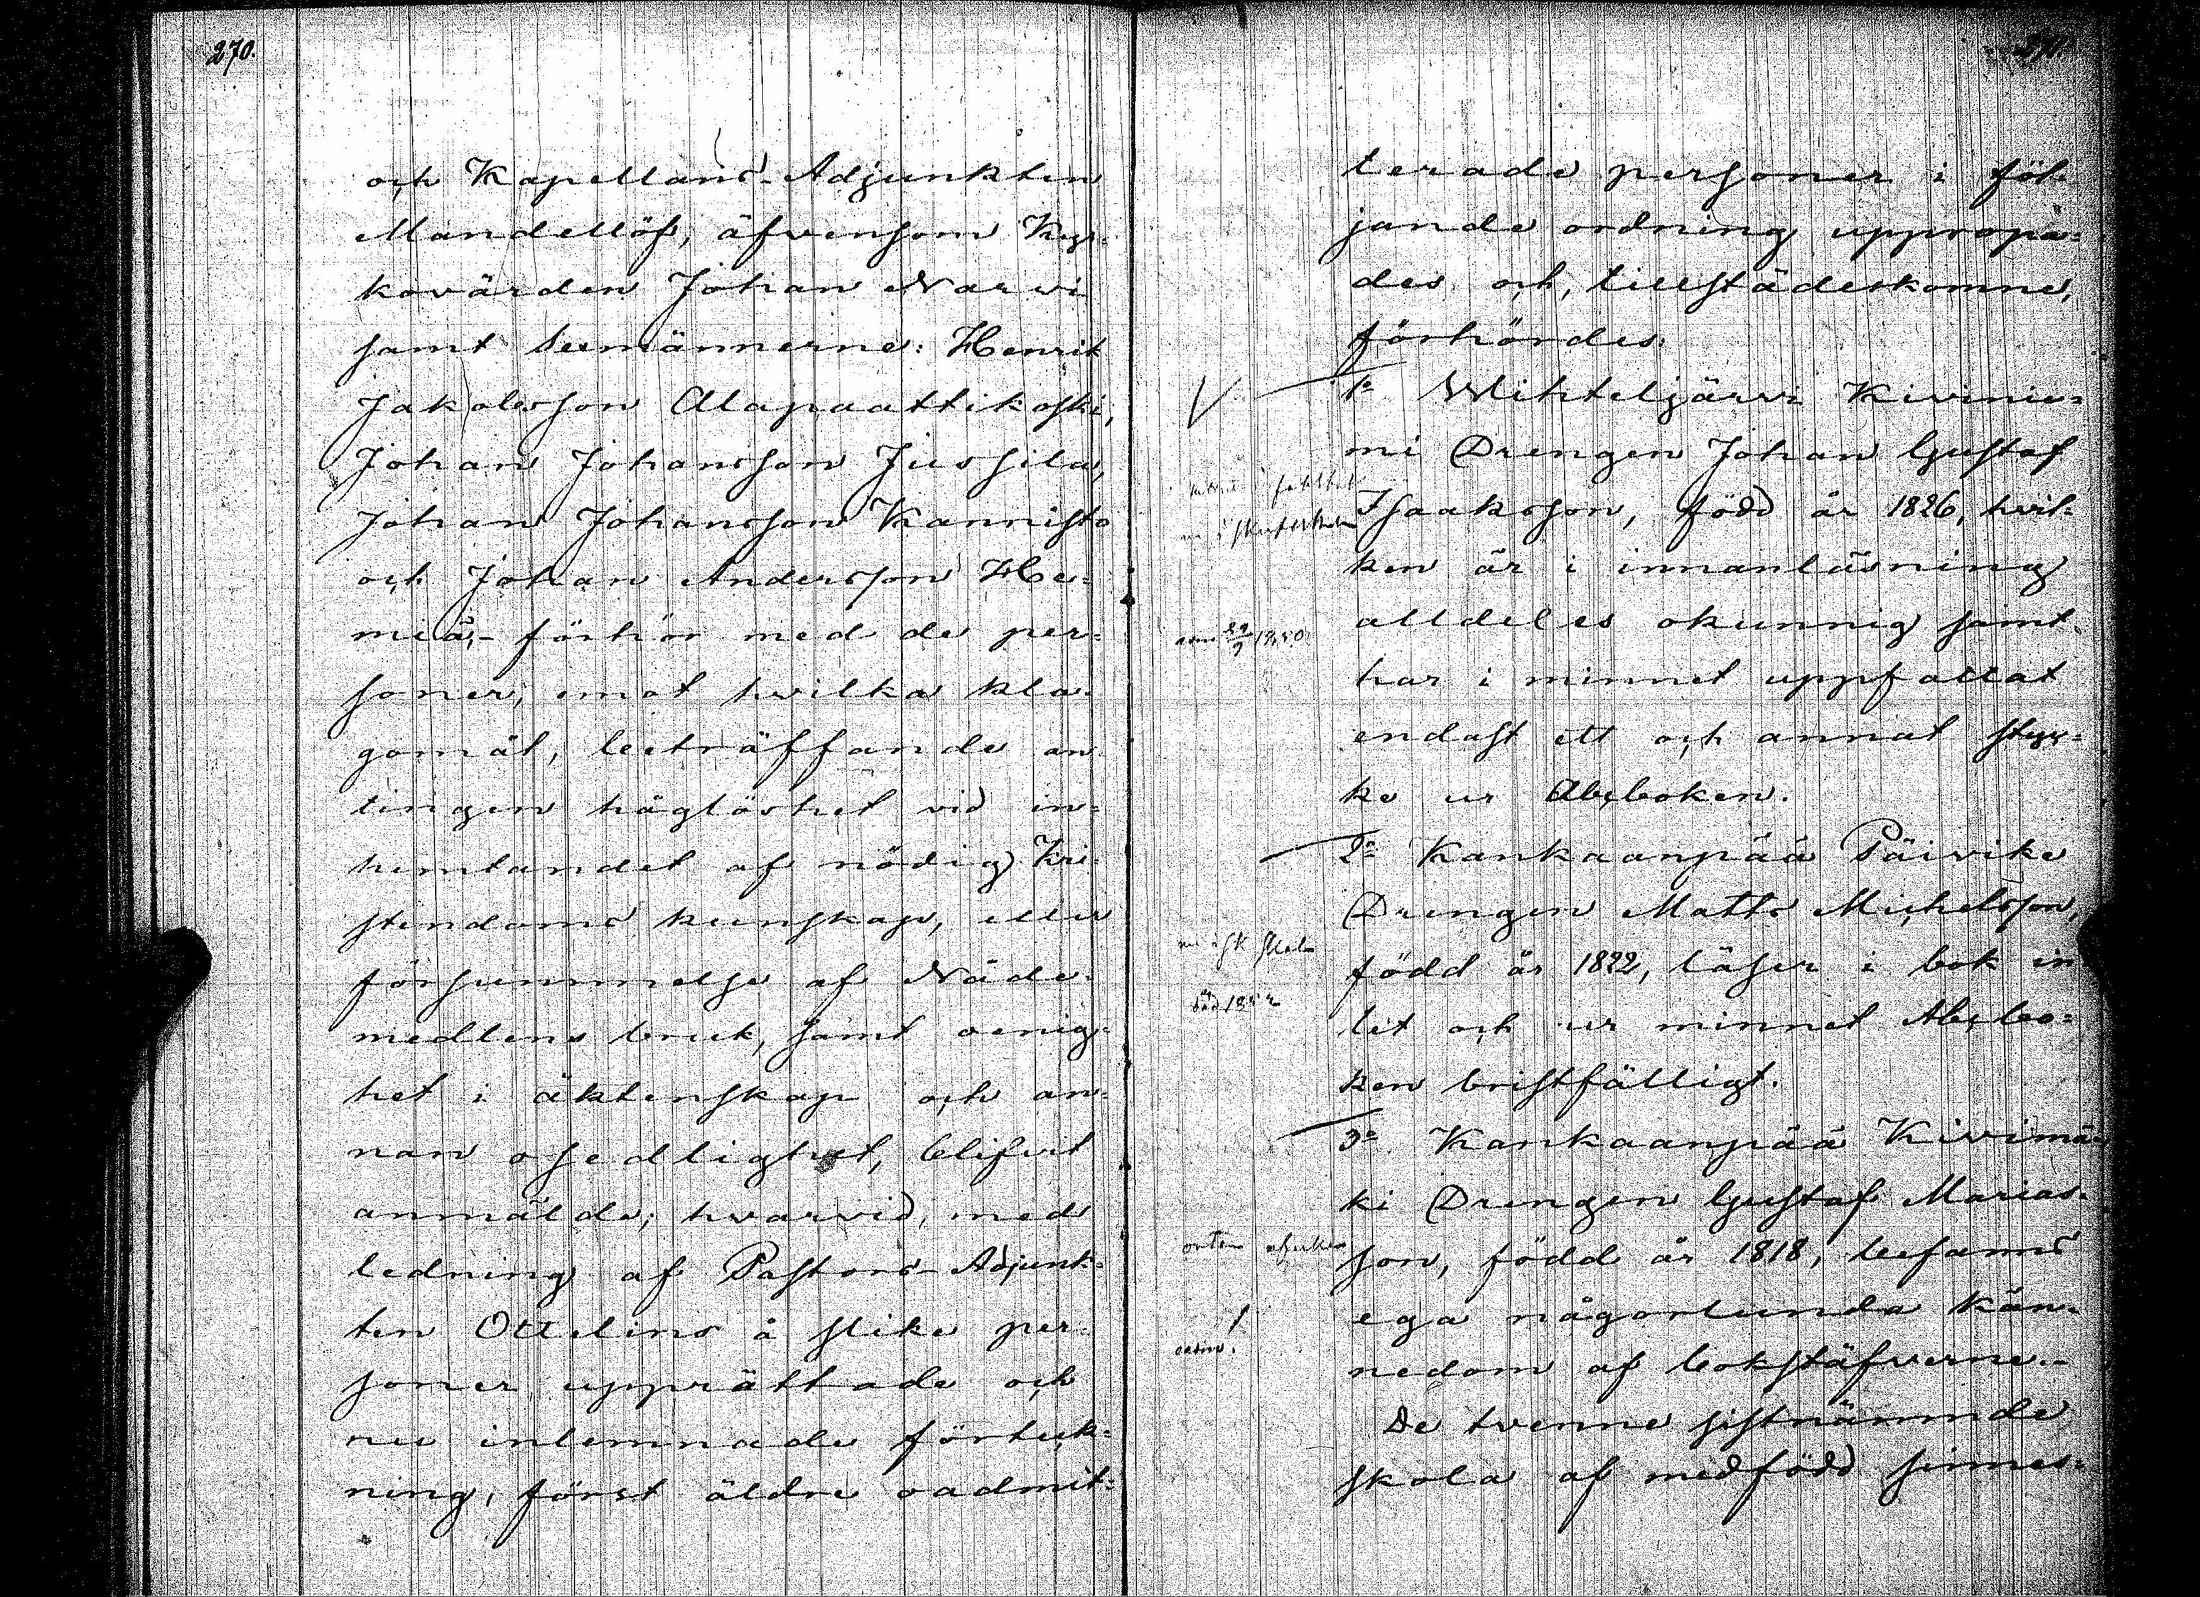 270.
och Kapellans-Adjunkten
Mandellöf, äfvensom Kyr=
kovärden Johan Narvi
samt Sexmännerne: Henrik
Jakobsson Alapaattikoski,
Johan Johansson Jussila,
Johan Johansson Kannisto
och Johan Andersson He=
miä,- förhör med de per=
soner, emot hvilka kla=
gomål, beträffande an=
tingen håglöshet vid in=
hemtandet af nödig Kri=
stendoms kunskap, eller
försummelse af Nåde=
medlens bruk, samt oenig=
het i äktenskap och an=
nan osedlighet, blifvit
anmälde; hvarvid, med
ledning af Pastors-Adjunk=
ten Ottelins å slike per=
soner upprättade och
nu inlemnade förteck=
ning, först äldre oadmit=
271.
terade personer i föl=
jande ordning uppropa=
des och, tillstädeskomne,
förhördes:
1o Wihteljärvi Kivinie=
mi Drengen Johan Gustaf
Isaksson, född år 1826, hvil=
ken är i innanläsning
alldeles okunnig samt
har i minnet uppfattat
endast ett och annat styc=
ke ur Abcboken.
2o Kankaanpää Päivike
Drengen Matts Michelsson,
född år 1822, läser i bok in=
tet och ur minnet Abcbo=
ken bristfälligt.
3o Kankaanpää Kivimä=
ki Drengen Gustaf Marias=
son, född år 1818, befanns
ega någorlunda kän=
nedom af bokstäfverne.-
De tvenne sistnämnde
skola af medfödd sinnes=
1850
död 1852